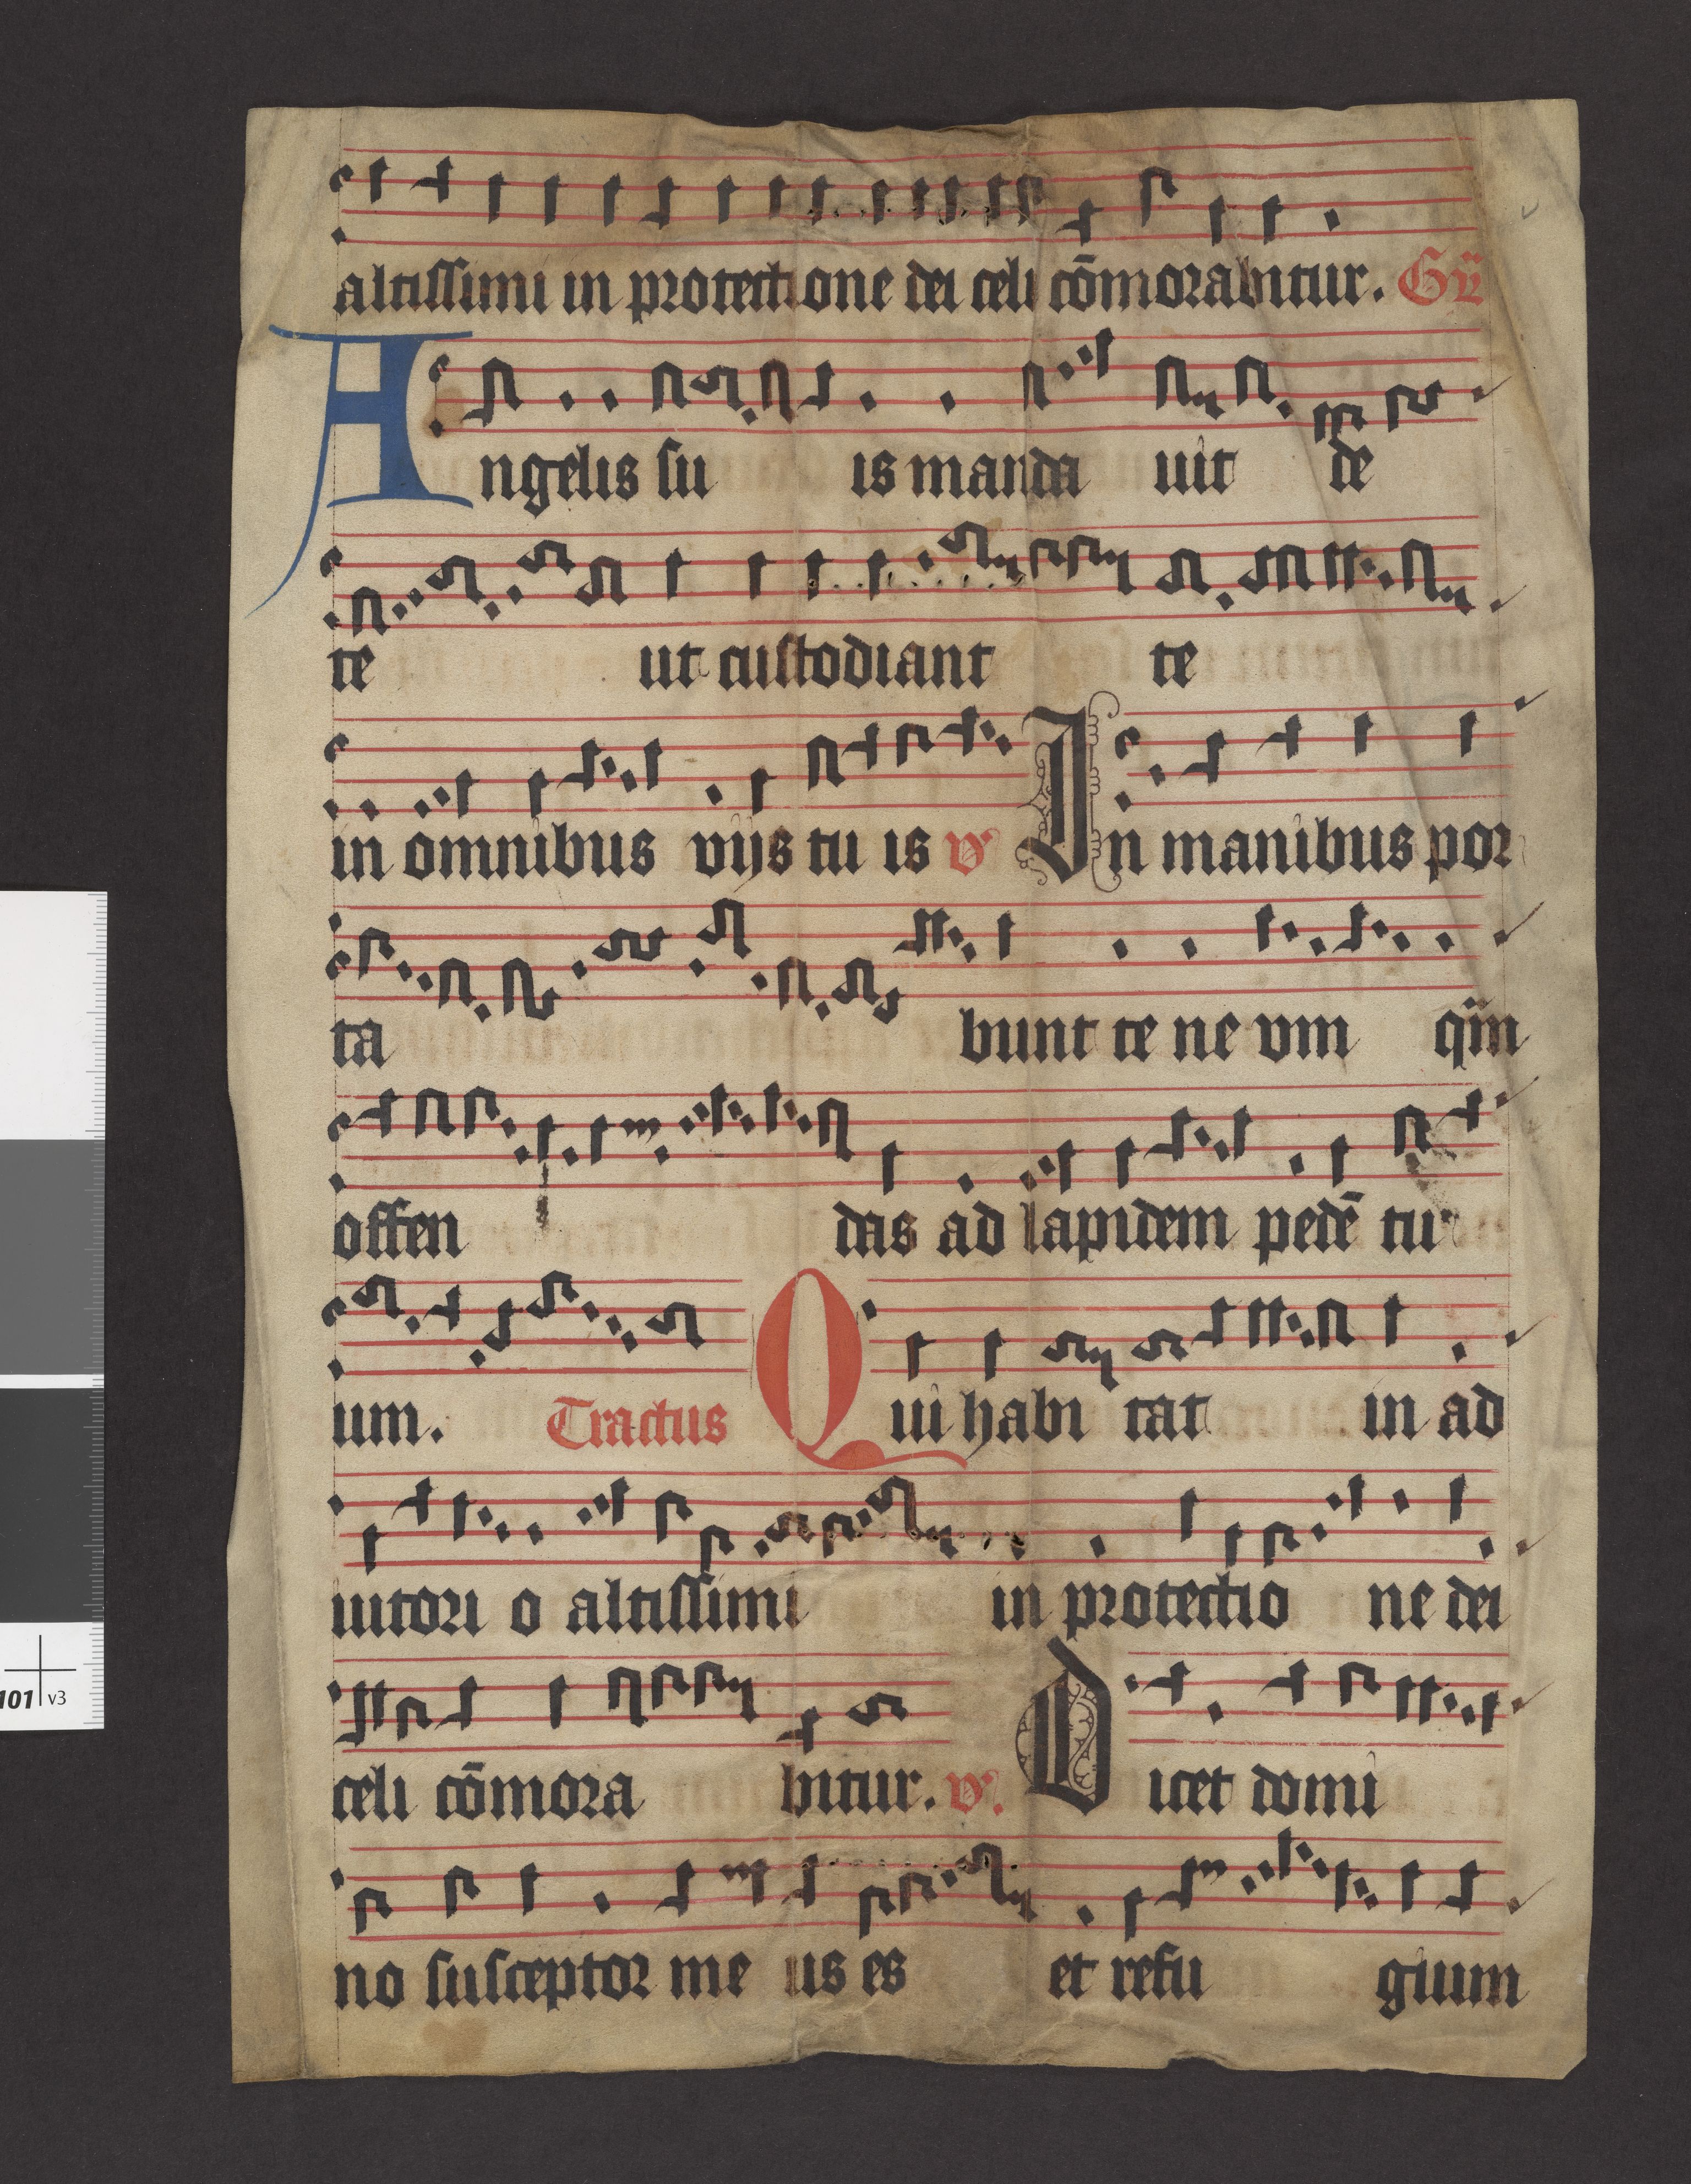 altissimi in protectione dei celi cōmorabitur. Gͬ
Angelis su is manda uit de
te ut custodiant te
in omnibus vijs tu is v In manibus por
ta bunt te ne vm qm̄
offen das ad lapidem pedē tu
um. Tractus Qui habi tat in ad
iutori o altissimi in protectio ne dei
celi cōmora bitur. v. Dicet domi
no susceptor me us es et refu gium
101 v3